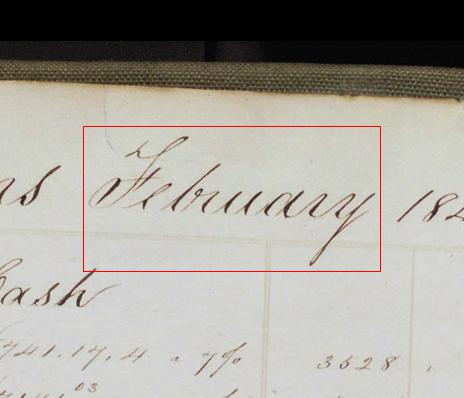 February 184
Cash
741.17.4 . 7% 3528 .